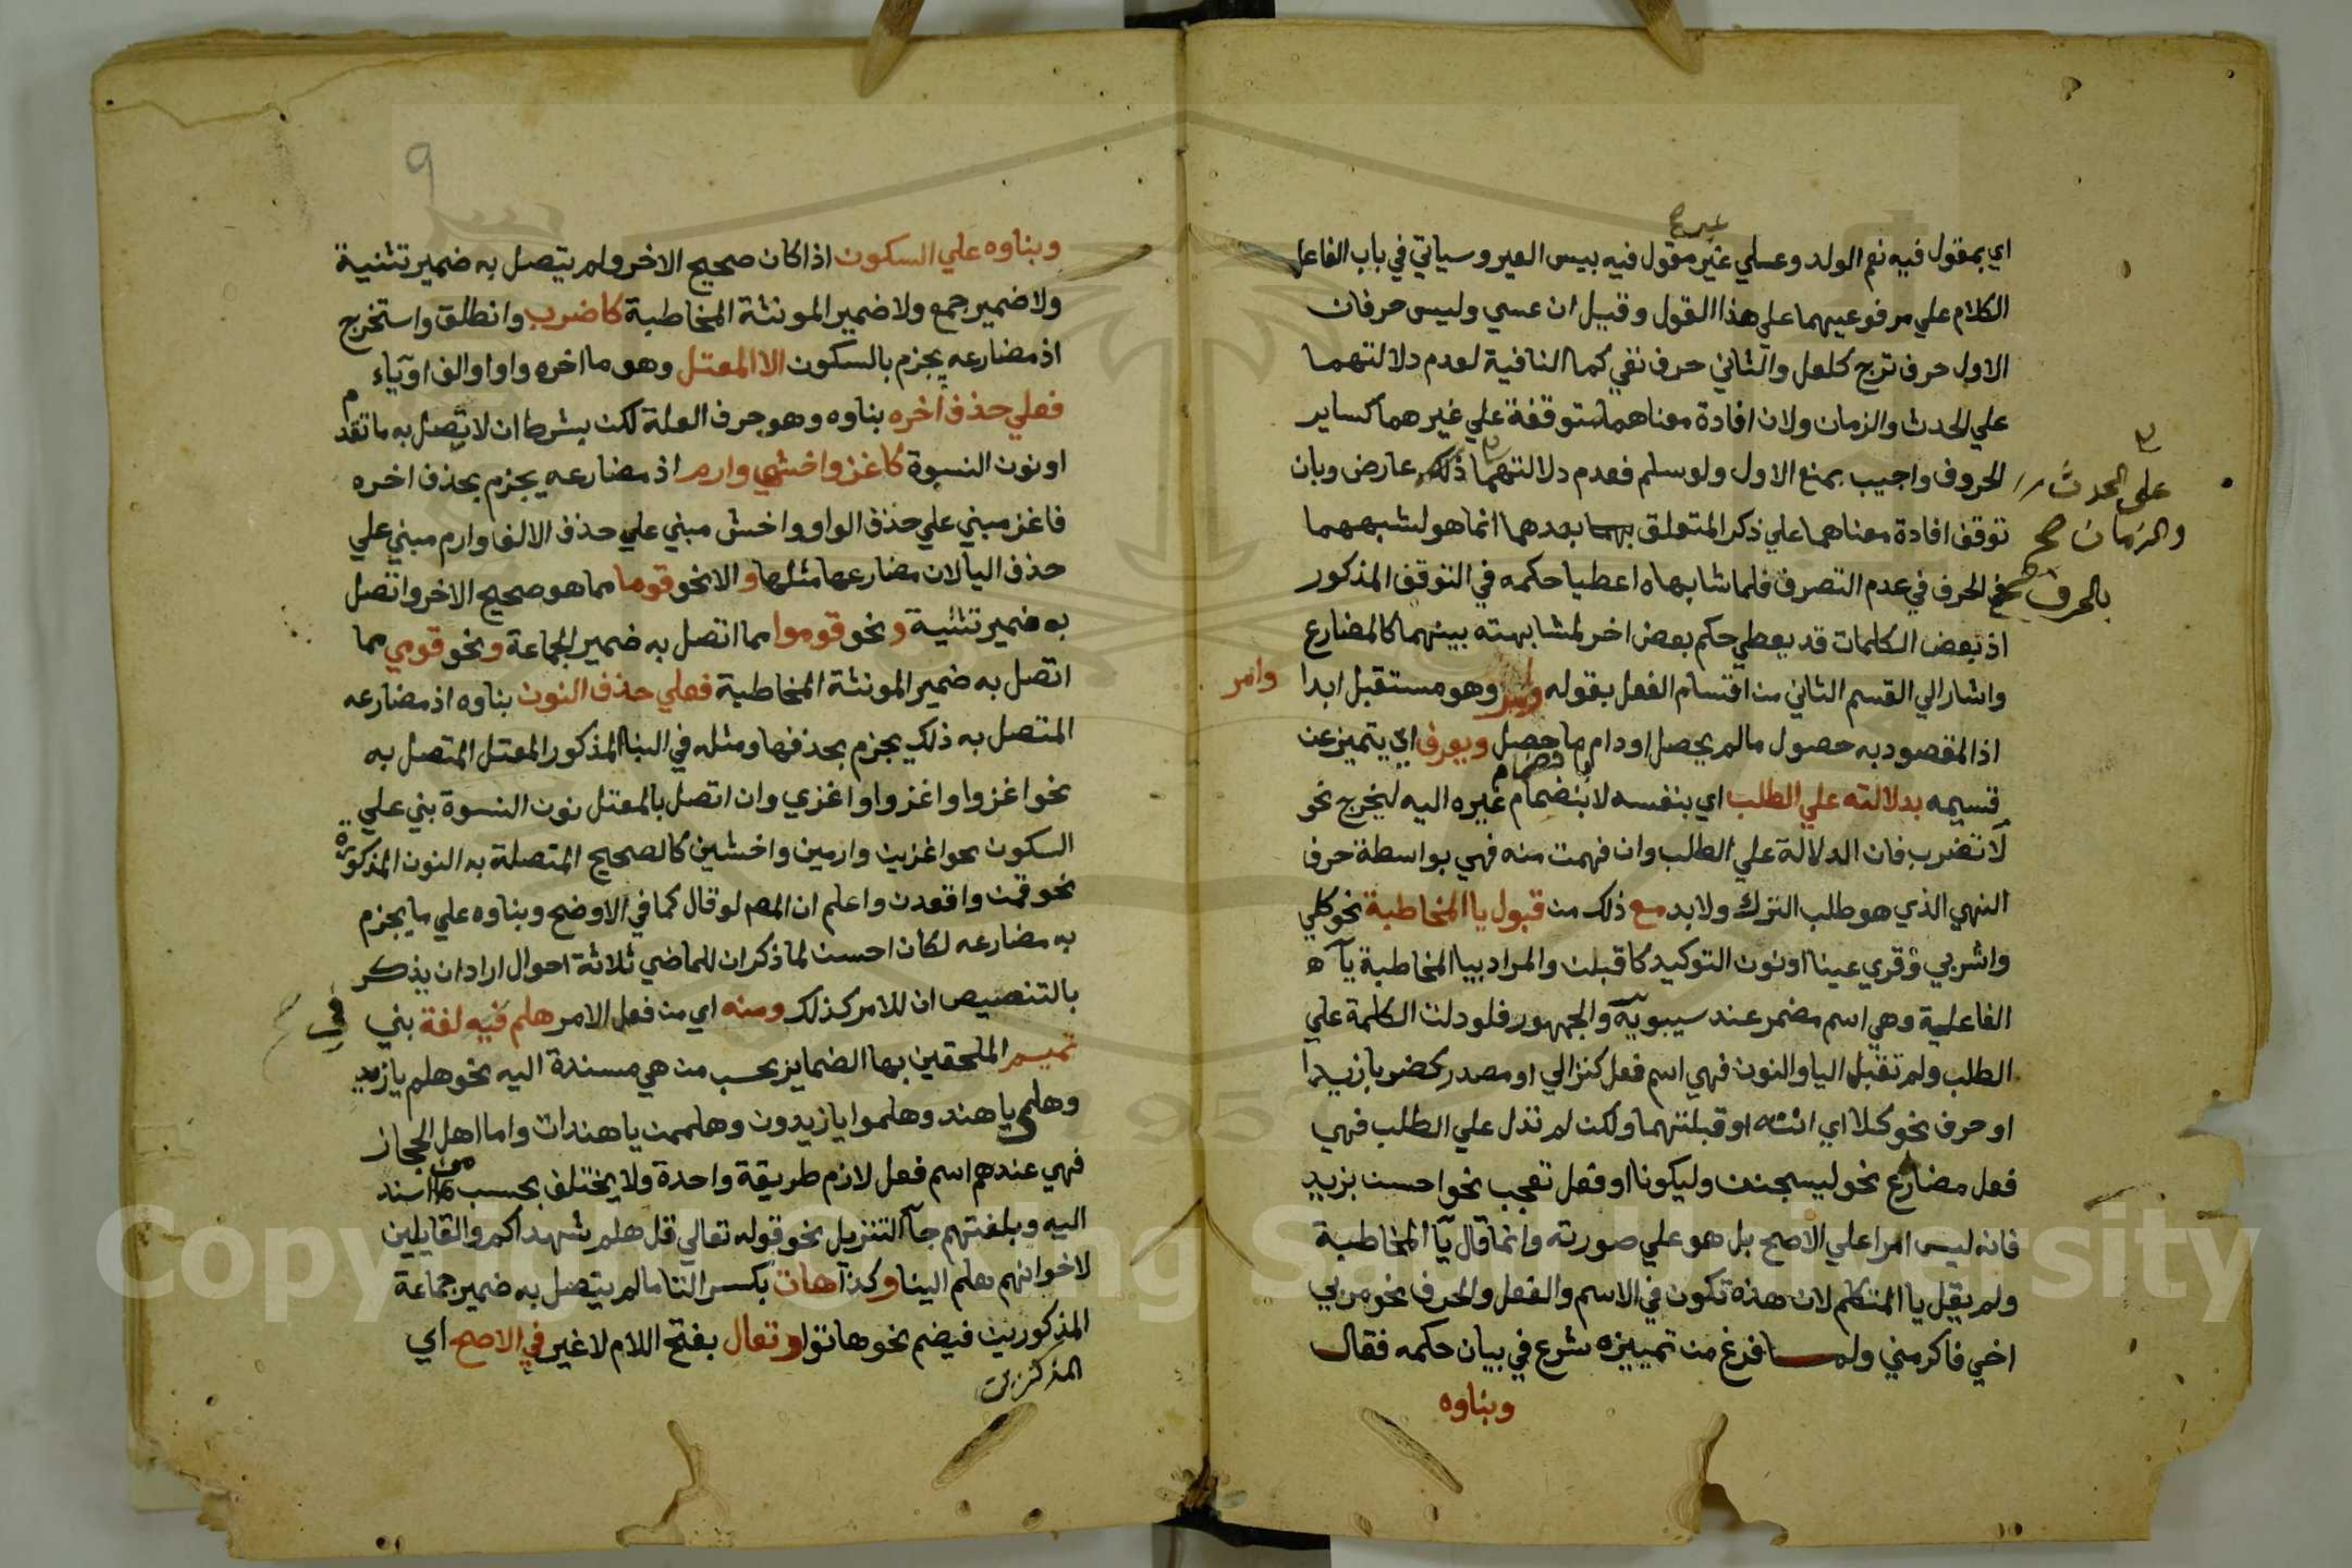 عير صح
اي بمقول فيه نعم الولد وعسلي عير مقول فيه بيس العير وسياتي في باب الفاعل
الكلام علي مرفوعيهما علي هذا القول وقيل ان عسي وليس حرفان
الاول حرف ترج كلعل والثاني حرف نفي كما النافية لعدم دلالتهما
علي الحدث والزمان ولان افادة معناهما متوقفة علي غيرهما كساير
الحروف واجيب بمنع الاول ولو سلم فعدم دلالتهما ذلك عارض وبان
على الحدث
والزمان صح
توقف افادة معناهما علي ذكر المتعلق بهما بعدهما انما هو لشبههما
في الحرف في عدم التصرف فلما شابهاه اعطيا حكمه في التوقف المذكور
بالحرف صح
اذ بعض الكلمات قد يعطي حكم بعض اخر لمشابهته بينهما كالمضارع
واشار الي القسم الثاني من اقتسام الفعل بقوله وامر وهو مستقبل ابدا
وامر
اذ المقصود به حصول ما لم يحصل او دام ما حصل ويعرف اي يتميز عن
قسيمه بدلالته علي الطلب اي بنفسه لا بنضمام غيره اليه ليخرج نحو
لا تضرب فان الدلالة علي الطلب وان فهمت منه فهي بواسطة حرف
النهي الذي هو طلب الترك ولا بد مع ذلك من قبول يا المخاطبة نحو كلي
واشربي وقري عينا او نون التوكيد كاقبلن والمراد بيا المخاطبة ياء
الفاعلية وهي اسم مضمر عند سيبويه والجمهور فلو دلت الكلمة علي
الطلب ولم تقبل اليا والنون فهي اسم فعل كنزالي او مصدر كضربا زيدا
او حرف نحو كلا اي انته او قبلتهما ولكن لم تدل علي الطلب فهي
فعل مضارع نحو ليسجنن وليكونا او فعل تعجب نحو احسن بزيد
فانه ليس امرا علي الاصح بل هو علي صورته وانما قال يا المخاطبة
ولم يقل يا المتكلم لان هذه تكون في الاسم والفعل والحرف نحو مر بي
اخي فاكرمني ولما فرغ من تمييزه شرع في بيان حكمه فقال
وبناوه
9
وبناوه علي السكون اذا كان صحيح الاخر ولم يتصل به ضمير تثنية
ولا ضمير جمع ولا ضمير المونثة المخاطبة كاضرب وانطلق واستخرج
اذ مضارعه يجزم بالسكون الا المعتل وهو ما اخره واو او الف او ياء
فعلي حذف اخره بناوه وهو حرف العلة لكن بشرط ان لا يتصل به ما تقدم
او نون النسوة كاغز واخشي وارم اذ مضارعه يجزم بحذف اخره
فاغز مبني علي حذف الواو واخش مبني علي حذف الالف وارم مبني علي
حذف اليا لان مضارعها مثلها والا نحو قوما مما هو صحيح الاخر واتصل
به ضمير تثنية ونحو قوموا مما اتصل به ضمير الجماعة ونحو قومي مما
اتصل به ضمير المونثة المخاطبة فعلي حذف النون بناوه اذ مضارعه
المتصل به ذلك يجزم بحذفها ومثله في البنا المذكور المعتل المتصل به
نحو اغزوا واغزوا واغزي وان اتصل بالمعتل نون النسوة بني علي
السكون نحو اغزين وارمين واخشين كالصحيح المتصلة به النون المذكورة
نحو قمن واقعدن واعلم ان المص لو قال كما في الاوضح وبناوه علي ما يجزم
به مضارعه لكان احسن لما ذكر ان للماضي ثلاثة احوال اراد ان يذكر
بالتنصيص ان للامر كذلك ومنه اي من فعل الامر هلم فيه لغة بني
في
تميم الملحقين بها الضماير بحسب من هي مسندة اليه نحو هلم يا زيد
وهلمي يا هند وهلموا يا زيدون وهلممن يا هندات واما اهل الحجاز
فهي عندهم اسم فعل لازم طريقة واحدة ولا يختلف بحسب من اسند
اليه وبلغتهم جا التنزيل نحو قوله تعالي قل هلم شهداكم والقايلين
لاخوانهم هلم الينا وكذا هات بكسر التا ما لم يتصل به ضمير جماعة
المذكورين فيضم نحو هاتوا وتعال بفتح اللام لا غير في الاصح اي
المذكرين
Copyright © King Saud University
1957